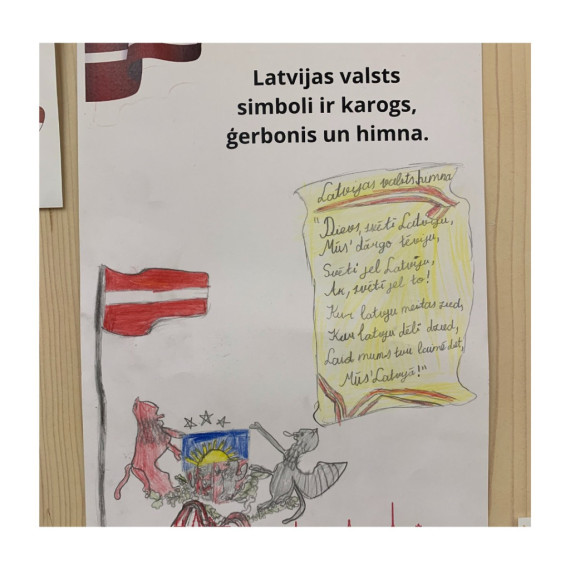 Latvijas valsts
simboli ir karogs,
ģerbonis un himna.
Latvijas valsts himna
"Dievs, svētī Latviju,
Mūs' dārgo tēviju,
Svētī jel Latviju,
Ak, svētī jel to!
Kur latvju meitas zied,
Kur latvju dēli dzied,
Laid mums tur laimē diet,
Mūs' Latvijā!"